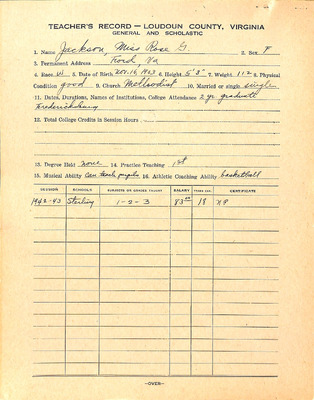 TEACHER'S RECORD — LOUDOUN COUNTY, VIRGINIA
GENERAL AND SCHOLASTIC
1. Name Jackson, Miss Rose G. 2. Sex F
3. Permanent Address Ford, Va
4. Race W 5. Date of Birth Nov. 16, 1923 6. Height 5' 3" 7. Weight 112 8. Physical
Condition good 9. Church Methodist 10. Married or single single
11. Dates, Durations, Names of Institutions, College Attendance 2 yr. graduate
Fredericksburg
12. Total College Credits in Session Hours
13. Degree Held none 14. Practice Teaching 1st
15. Musical Ability Can teach pupils 16. Athletic Coaching Ability basketball
SESSION SCHOOLS SUBJECTS OR GRADES TAUGHT SALARY CERTIFICATE
1942-43 Sterling 1-2-3 83 00 18 NP
—OVER—